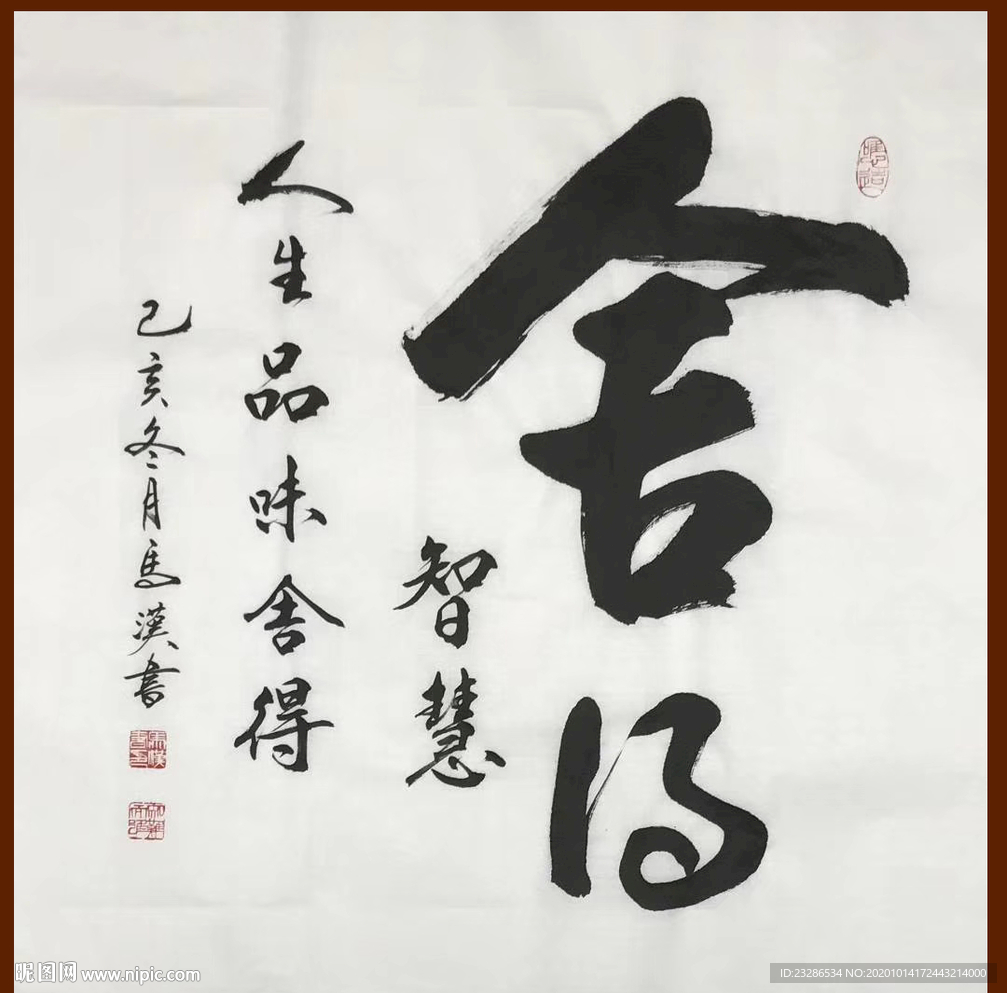 舍得
智慧
人生品味舍得
己亥冬月馬漢書
昵图网 www.nipic.com
ID:23286534 NO:20201014172443214000